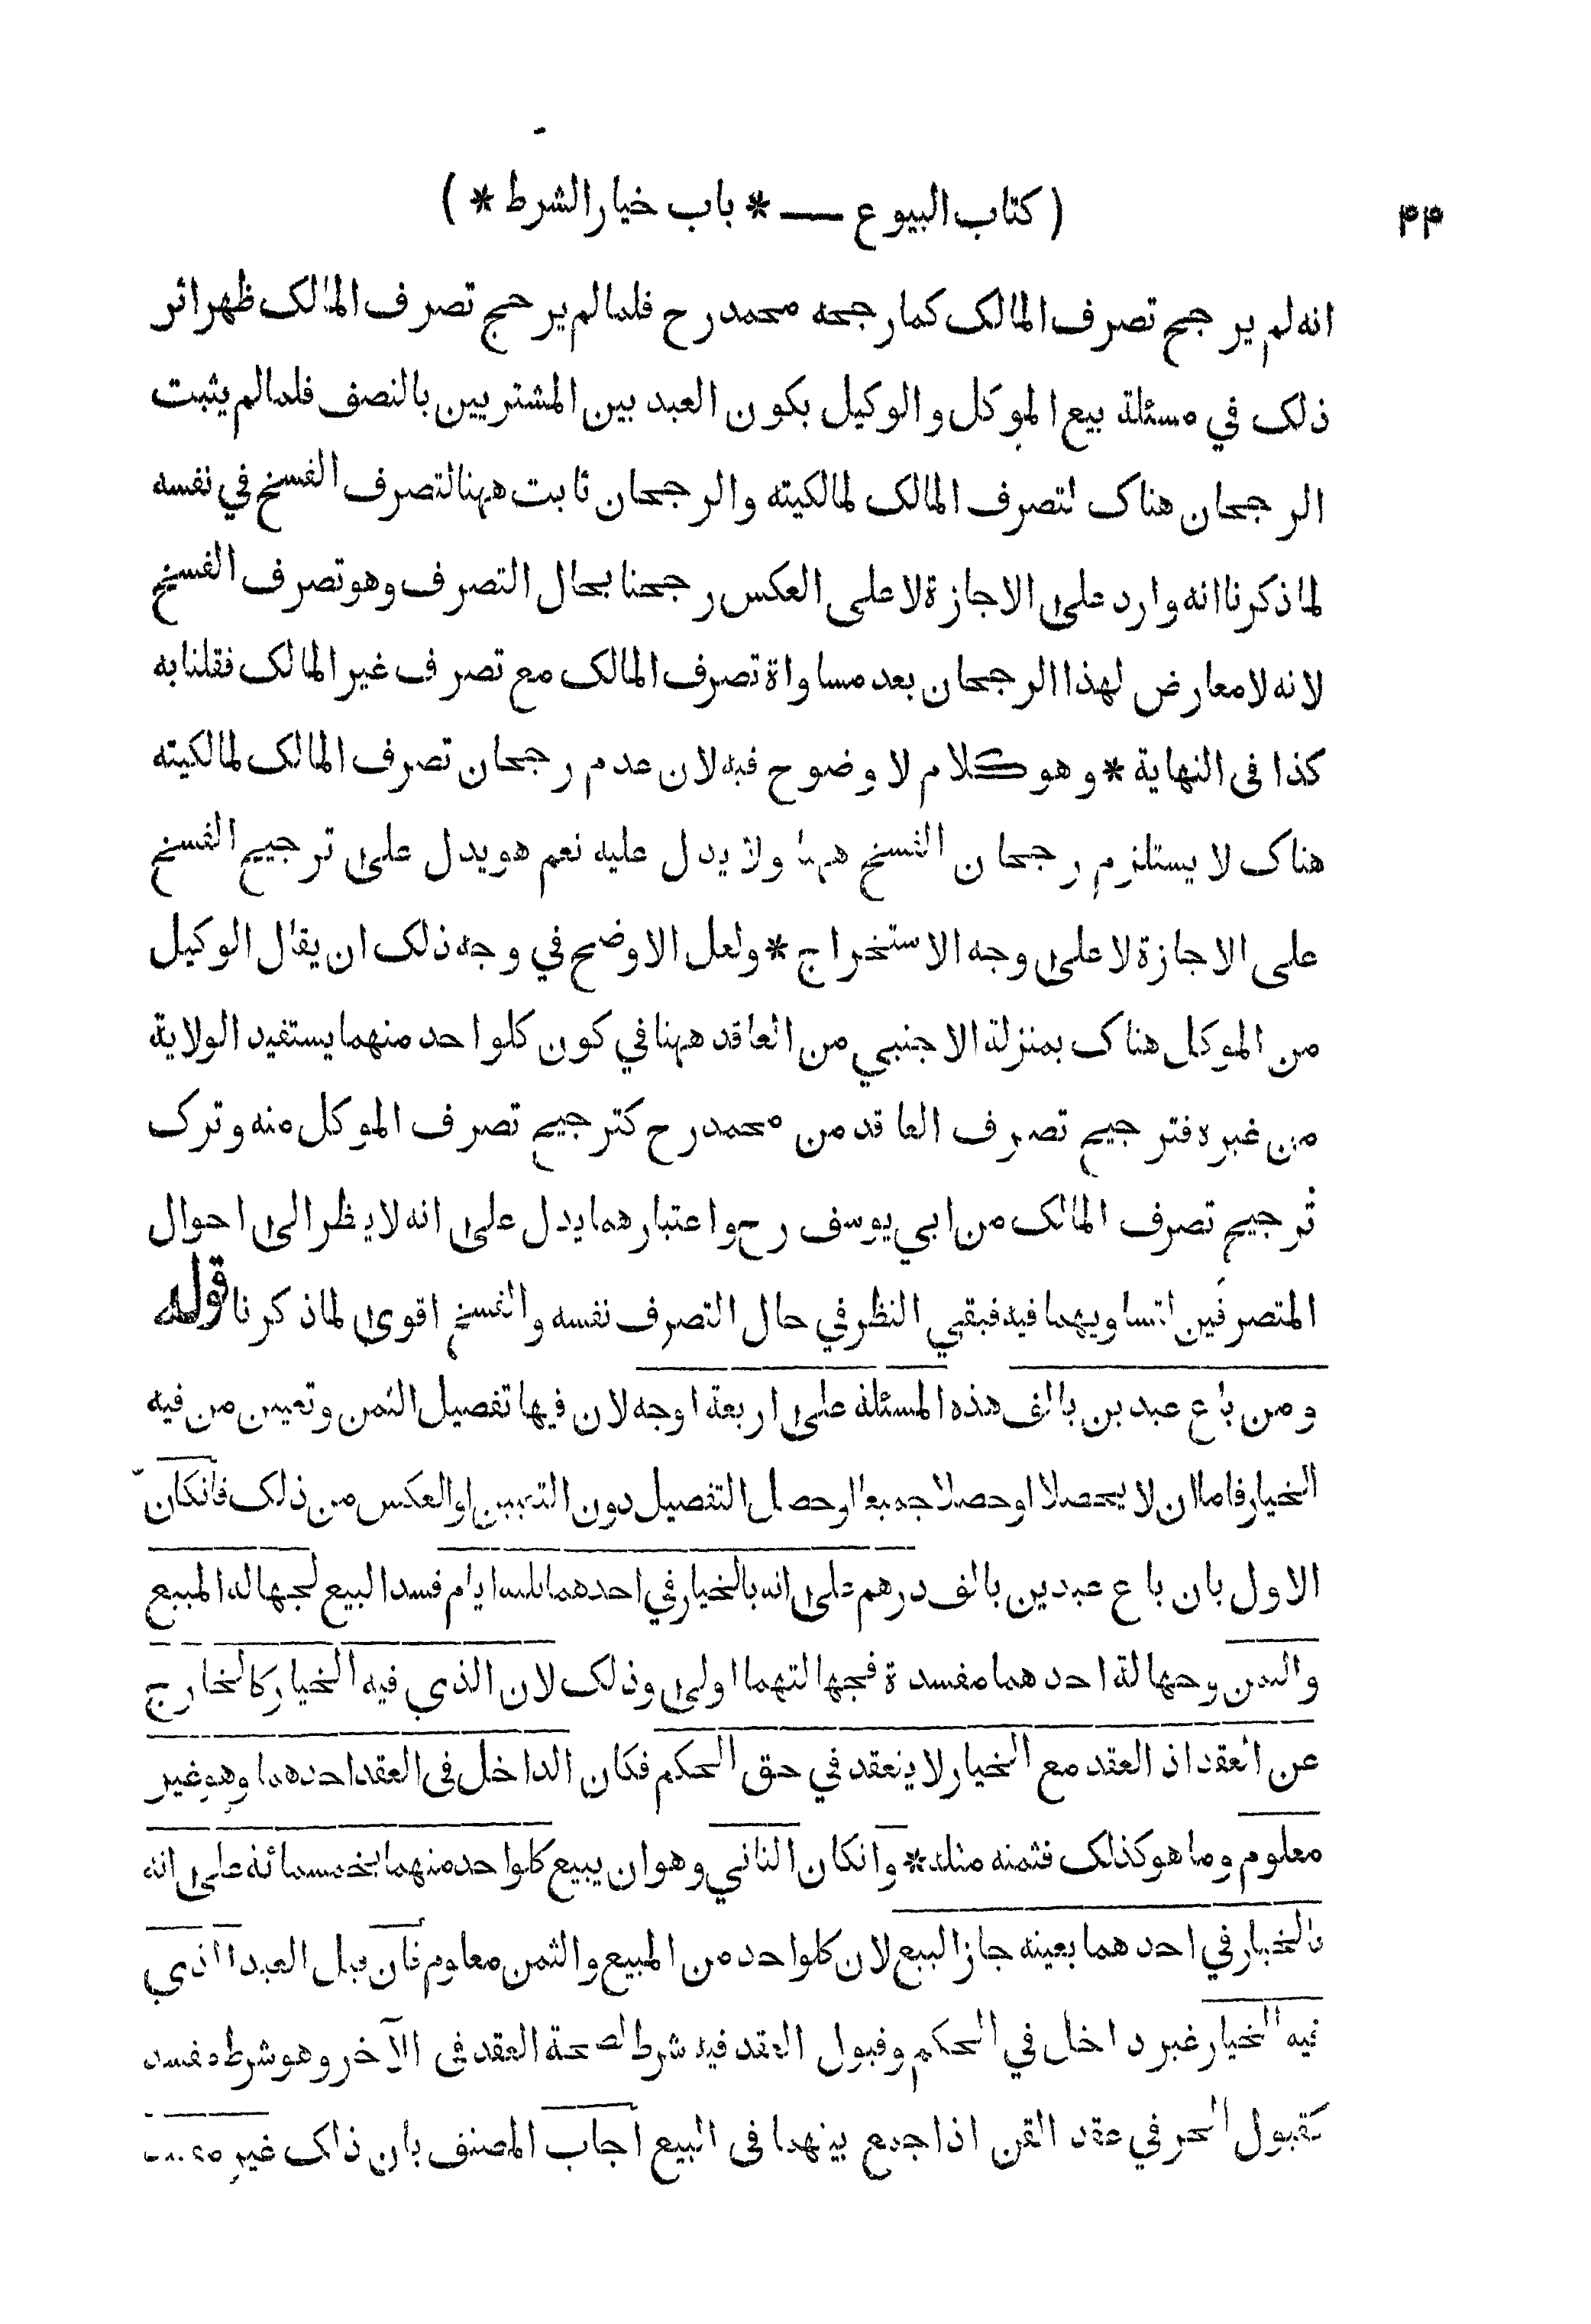 ( كتاب البيوع — * باب خيار الشرط * )
۴۴
انه لم يرجح تصرف المالک كمارجحه محمد رح فلما لم يرجح تصرف المالک ظهر اثر
ذلک في مسئلة بيع الموكل والوكيل بكون العبد بين المشتريين بالنصف فلما لم يثبت
الرجحان هناک لتصرف المالک لمالكيته والرجحان ثابت ههنا لتصرف الفسخ في نفسه
لما ذكرنا انه وارد على الاجازة لا على العكس رجحنا بحال التصرف وهو تصرف الفسخ
لانه لا معارض لهذا الرجحان بعد مساواة تصرف المالک مع تصرف غير المالک فقلنا به
كذا فى النهاية * وهو كلام لا وضوح فيه لان عدم رجحان تصرف المالک لمالكيته
هناک لا يستلزم رجحان الفسخ ههنا ولا يدل عليه نعم هو يدل على ترجيح الفسخ
على الاجازة لا على وجه الاستخراج * ولعل الاوضح في وجه ذلک ان يقال الوكيل
من الموكل هناک بمنزلة الاجنبي من العاقد ههنا في كون كلواحد منهما يستفيد الولاية
من غيره فترجيح تصرف العاقد من محمد رح كترجيح تصرف الموكل منه وترک
ترجيح تصرف المالک من ابي يوسف رح واعتبارهما يدل على انه لا ينظر الى احوال
المتصرفين لتساويهما فيه فبقي النظر في حال التصرف نفسه والفسخ اقوى لما ذكرنا قوله
ومن باع عبدين بالف هذه المسئلة على اربعة اوجه لان فيها تفصيل الثمن وتعيين من فيه
الخيار فاما ان لا يحصلا او حصلا جميعا او حصل التفصيل دون التعيين او العكس من ذلک فانكان
الاول بان باع عبدين بالف درهم على انه بالخيار في احدهما ثلثة ايام فسد البيع لجهالة المبيع
والثمن وجهالة احدهما مفسدة فجهالتهما اولى وذلک لان الذي فيه الخيار كالخارج
عن العقد اذ العقد مع الخيار لا ينعقد في حق الحكم فكان الداخل فى العقد احدهما وهو غير
معلوم وما هو كذلک فثمنه مثله * وانكان الثاني وهو ان يبيع كلواحد منهما بخمسمائة على انه
بالخيار في احدهما بعينه جاز البيع لان كلواحد من المبيع والثمن معلوم فان قيل العبد الذي
فيه الخيار غير داخل في الحكم وقبول العقد فيه شرط لصحة العقد فى الآخر وهو شرط مفسد
كقبول الحر في عقد القن اذا جمع بينهما فى البيع اجاب المصنف بان ذلک غير